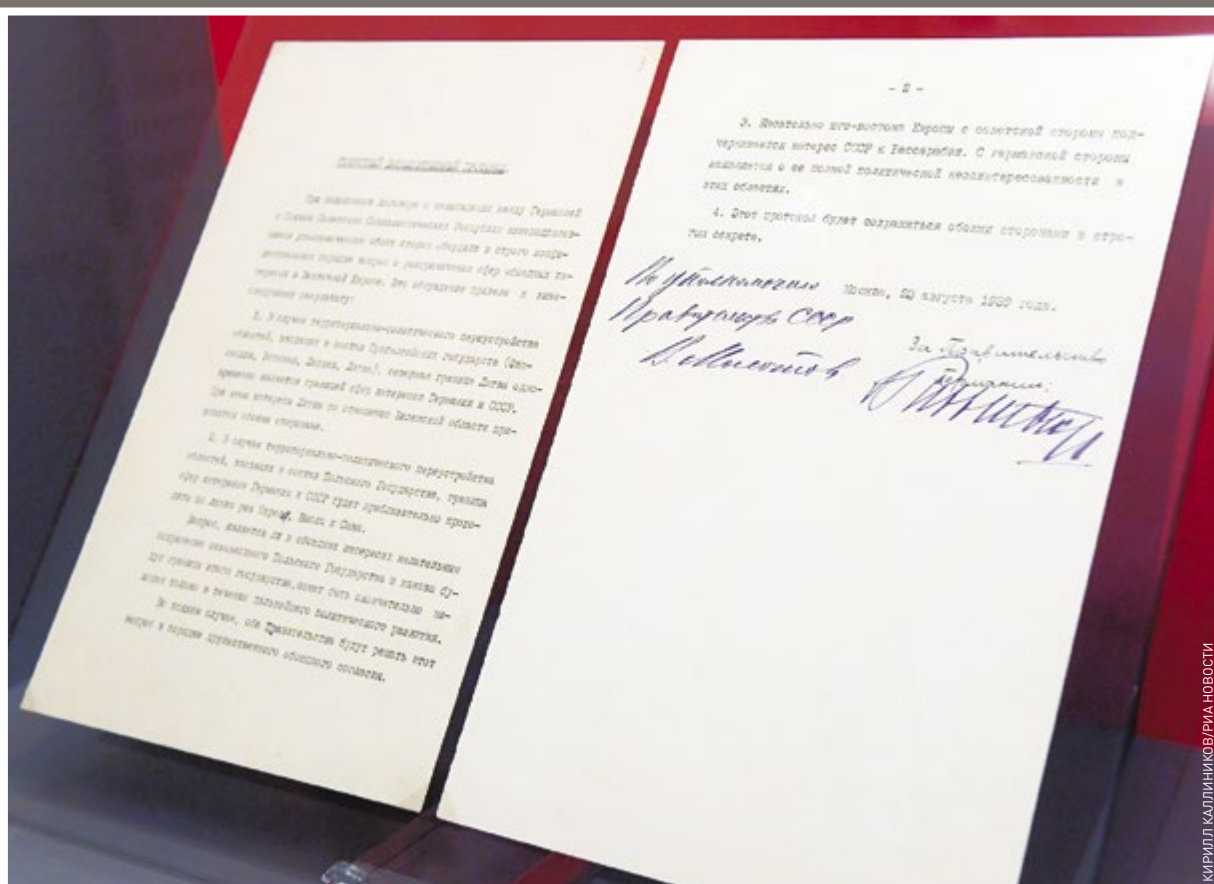 СЕКРЕТНЫЙ ДОПОЛНИТЕЛЬНЫЙ ПРОТОКОЛ.
При подписании договора о ненападении между Германией
и Союзом Советских Социалистических Республик нижеподписав-
шиеся уполномоченные обеих сторон обсудили в строго конфи-
денциальном порядке вопрос о разграничении сфер обоюдных ин-
тересов в Восточной Европе. Это обсуждение привело к ниже-
следующему результату:
1. В случае территориально-политического переустройства
областей, входящих в состав Прибалтийских государств (Фин-
ляндия, Эстония, Латвия, Литва), северная граница Литвы одно-
временно является границей сфер интересов Германии и СССР.
При этом интересы Литвы по отношению Виленской области приз-
наются обеими сторонами.
2. В случае территориально-политического переустройства
областей, входящих в состав Польского Государства, граница
сфер интересов Германии и СССР будет приблизительно прохо-
дить по линии рек Нарева, Вислы и Сана.
Вопрос, является ли в обоюдных интересах желательным
сохранение независимого Польского Государства и каковы бу-
дут границы этого государства, может быть окончательно вы-
яснен только в течение дальнейшего политического развития.
Во всяком случае, оба Правительства будут решать этот
вопрос в порядке дружественного обоюдного согласия.
- 2 -
3. Касательно юго-востока Европы с советской стороны под-
черкивается интерес СССР к Бессарабии. С германской стороны
заявляется о ее полной политической незаинтересованности в
этих областях.
4. Этот протокол будет сохраняться обеими сторонами в стро-
гом секрете.
Москва, 23 августа 1939 года.
По уполномочию
Правительства СССР
В. Молотов
За Правительство
Германии:
КИРИЛЛ КАЛЛИНИКОВ/РИА НОВОСТИ